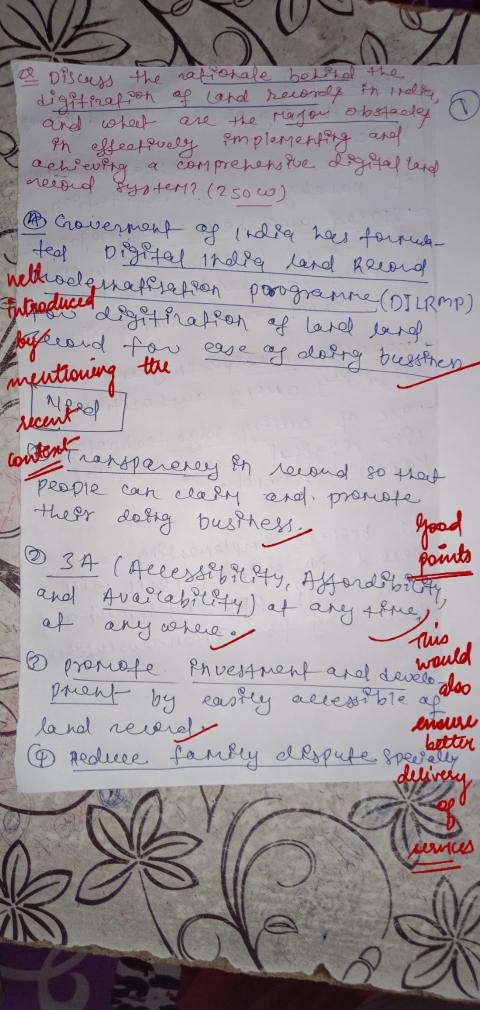 ①
Q Discuss the rationale behind the
digitization of land records in India,
and what are the major obstacles
in effectively implementing and
achieving a comprehensive digital land
record system? (250 W)
(A) Goverment of India has formula-
ted Digital India land Record
modernatisation programme (DILRMP)
for digitization of land land
record for ease of doing bussiness
well
introduced
by
mentioning the
recent
context
Need
Transparency in record so that
people can claim and promote
their doing business.
② 3A (Accessibility, Affordibility,
and Availability) at any time,
at any where.
Good
points
③ promote investment and develo-
pment by easily accessible of
land record.
④ Reduce family dispute specially
This
would
also
ensure
better
delivery
of
services